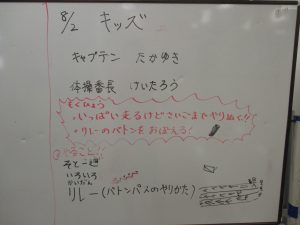 8/2 キッズ
キャプテン たかゆき
体操番長 けいたろう
もくひょう
・いっぱい走るけどさいごまでやりぬく!!
・リレーのバトンをおぼえる!
やること!!
そと一周
いろいろ
かいだん
リレー(バトンパスのやりかた)